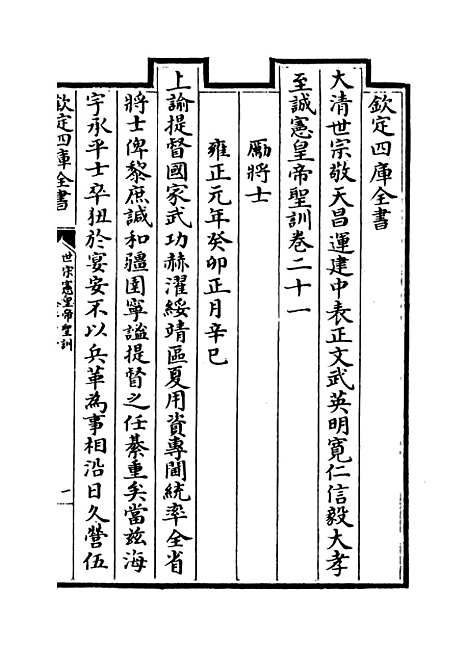 欽定四庫全書
大清世宗敬天昌運建中表正文武英明寛仁信毅大孝
至誠憲皇帝聖訓卷二十一
勵將士
雍正元年癸卯正月辛巳
上諭提督國家武功赫濯綏靖區夏用資專閫統率全省
將士俾黎庶諴和疆圉寧謐提督之任綦重矣當兹海
宇承平士卒狃於宴安不以兵革為事相沿日久營伍
欽定四庫全書
世宗憲皇帝聖訓
一